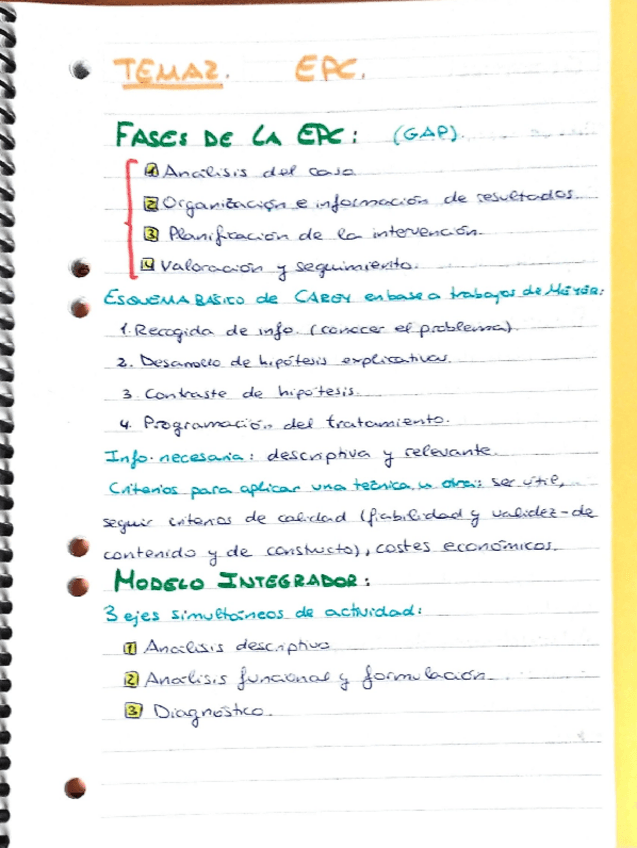 TEMA 2. EPC.
FASES DE LA EPC: (GAP).
1 Análisis del caso
2 Organización e información de resultados.
3 Planificación de la intervención.
4 Valoración y seguimiento.
ESQUEMA BÁSICO de CAROY en base a trabajos de Meyer:
1. Recogida de info. (conocer el problema).
2. Desarrollo de hipótesis explicativas.
3 Contraste de hipótesis.
4. Programación del tratamiento.
Info. necesaria: descriptiva y relevante.
Criterios para aplicar una técnica u otra: ser útil,
seguir criterios de calidad (fiabilidad y validez-de
contenido y de constructo), costes económicos.
MODELO INTEGRADOR:
3 ejes simultáneos de actividad:
1 Análisis descriptivo
2 Análisis funcional y formulación.
3 Diagnóstico.